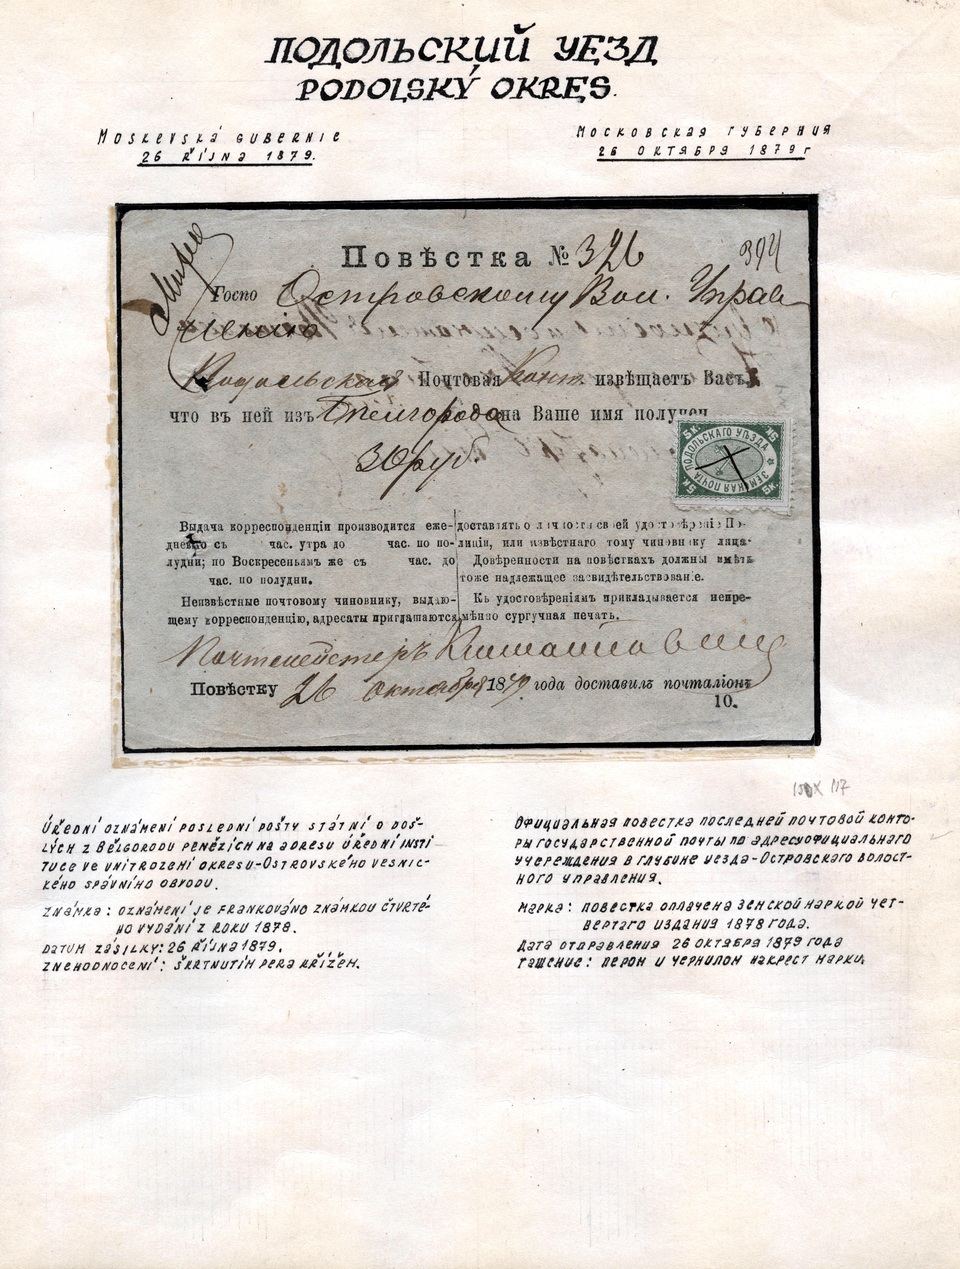 ПОДОЛЬСКИЙ УЕЗД
PODOLSKÝ OKRES.
MOSKEVSKÁ GUBERNIE
26 ŘÍJNA 1879.
МОСКОВСКАЯ ГУБЕРНИЯ
26 ОКТЯБРЯ 1879 г
Повѣстка № 326
394
Госпо Островскому Вол. Управ
ленію
Подольская Почтовая Конт. извѣщаетъ Васъ,
что въ ней изъ Белгорода на Ваше имя получен
30 руб.
5 К. ПОДОЛЬСКАГО УѢЗДА ЗЕМСКАЯ ПОЧТА
Выдача корреспонденціи производится еже-
дневно съ час. утра до час. по по-
лудни; по Воскресеньямъ же съ час. до
час. по полудни.
Неизвѣстные почтовому чиновнику, выдаю-
щему корреспонденцію, адресаты приглашаются
доставлять о личности своей удостовѣреніе По-
лиціи, или извѣстнаго тому чиновнику лица.
Довѣренности на повѣсткахъ должны имѣть
тоже надлежащее засвидѣтельствованіе.
Къ удостовѣреніямъ прикладывается непре-
мѣнно сургучная печать.
Почтмейстеръ
Повѣстку 26 октября 1879 года доставилъ почталіонъ
10.
150 X 117
ÚŘEDNÍ OZNÁMENÍ POSLEDNÍ POŠTY STÁTNÍ O DOŠ-
LÝCH Z BĚLGORODU PENĚZÍCH NA ADRESU ÚŘEDNÍ INSTI
TUCE VE VNITROZENÍ OKRESU-OSTROVSKÉHO VESNIC-
KÉHO SPÁVNÍHO OBVODU.
ZNÁMKA: OZNÁMENÍ JE FRANKOVÁNO ZNÁMKOU ČTVRTÉ-
HO VYDÁNÍ Z ROKU 1878.
DATUM ZÁSILKY: 26 ŘÍJNA 1879.
ZNEHODNOCENÍ: ŠKRTNUTÍM PERA KŘÍŽEM.
ОФИЦИАЛЬНАЯ ПОВЕСТКА ПОСЛЕДНЕЙ ПОЧТОВОЙ КОНТО-
РЫ ГОСУДАРСТВЕННОЙ ПОЧТЫ ПО АДРЕСУ ОФИЦИАЛЬНАГО
УЧЕРЕЖДЕНИЯ В ГЛУБИНЕ УЕЗДА-ОСТРОВСКАГО ВОЛОСТ-
НОГО УПРАВЛЕНИЯ.
МАРКА: ПОВЕСТКА ОПЛАЧЕНА ЗЕМСКОЙ МАРКОЙ ЧЕТ-
ВЕРТАГО ИЗДАНИЯ 1878 ГОДА.
ДАТА ОТПРАВЛЕНИЯ 26 ОКТЯБРЯ 1879 ГОДА
ГАШЕНИЕ: ПЕРОМ И ЧЕРНИЛОМ НАКРЕСТ МАРКИ.